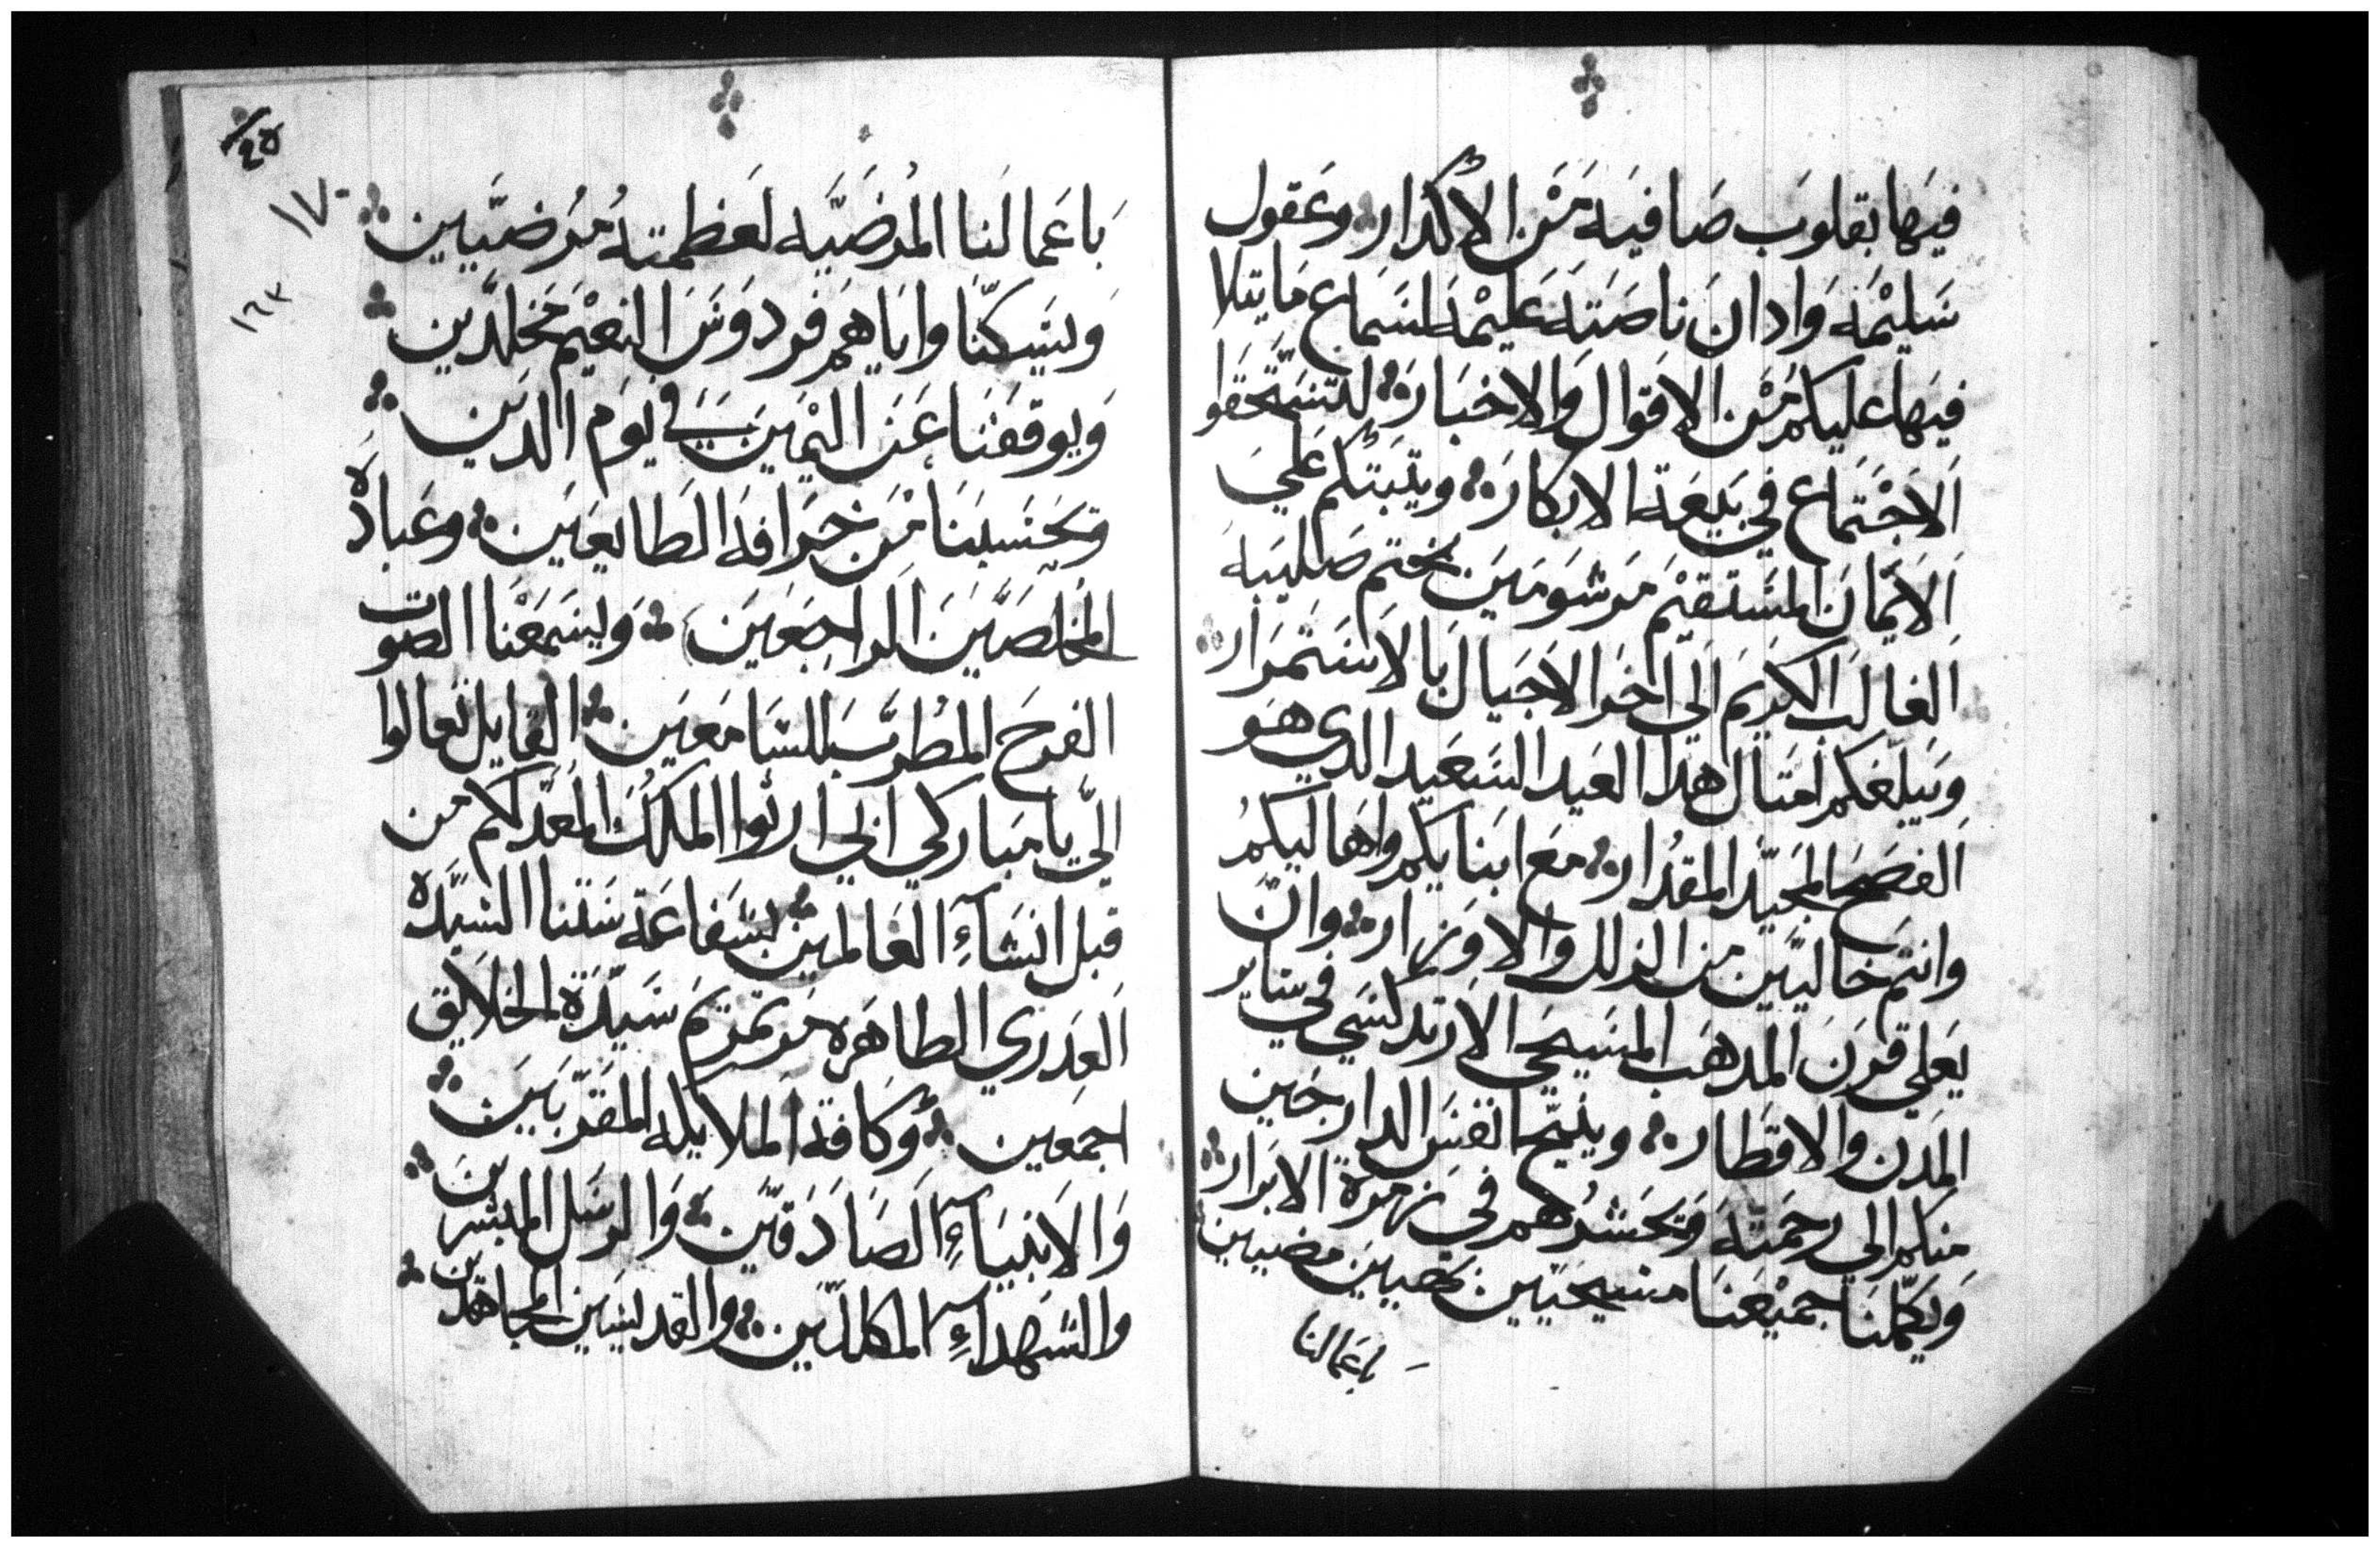 فيها بقلوب صافيه من الاكدار وعقول
سليمه وادان ناصته عليمه لسماع ما يتلا
فيها عليكم من الاقوال والاخبار لتستحقوا
الاجتماع في بيعة الابكار ويتبتكم علي
الايمان المستقيم مرشومين بختم صليبه
الغالب الكريم الي اخر الاجيال بالاستمرار
ويبلغكم امتال هدا العيد السعيد الدي هو
الفصح المجيد المقدار مع ابنايكم واهاليكم
وانتم خاليين من الزلل والاوزار وان
يعلي قرن المدهب المسيحي الارتدلسي في ساير
المدن والاقطار وينيح انفس الدارجين
منكم الي رحمته ويحشرهم في زمرة الابرار
ويكملنا جميعنا مسيحيين مضيين
باعمالنا
٢٥
١٧٠
١٦٣
باعمالنا المرضيه لعظمته مرضيين
ويسكنا واياهم فردوس النعيم مخلدين
ويوقفنا عن اليمين في يوم الدين
ويحسبنا من خرافه الطايعين وعباده
المخلصين الراجعين ويسمعنا الصوت
الفرح المطرب للسامعين القايل تعالوا
الي يا مباركي ابي ارتوا الملك المعد لكم من
قبل انشاء العالمين بشفاعة ستنا السيده
العدري الطاهره مرتمريم سيدة الخلايق
اجمعين وكافة الملايكه المقربين
والانبياء الصادقين والرسل المبشرين
والشهداء المكللين والقديسين المجاهدين